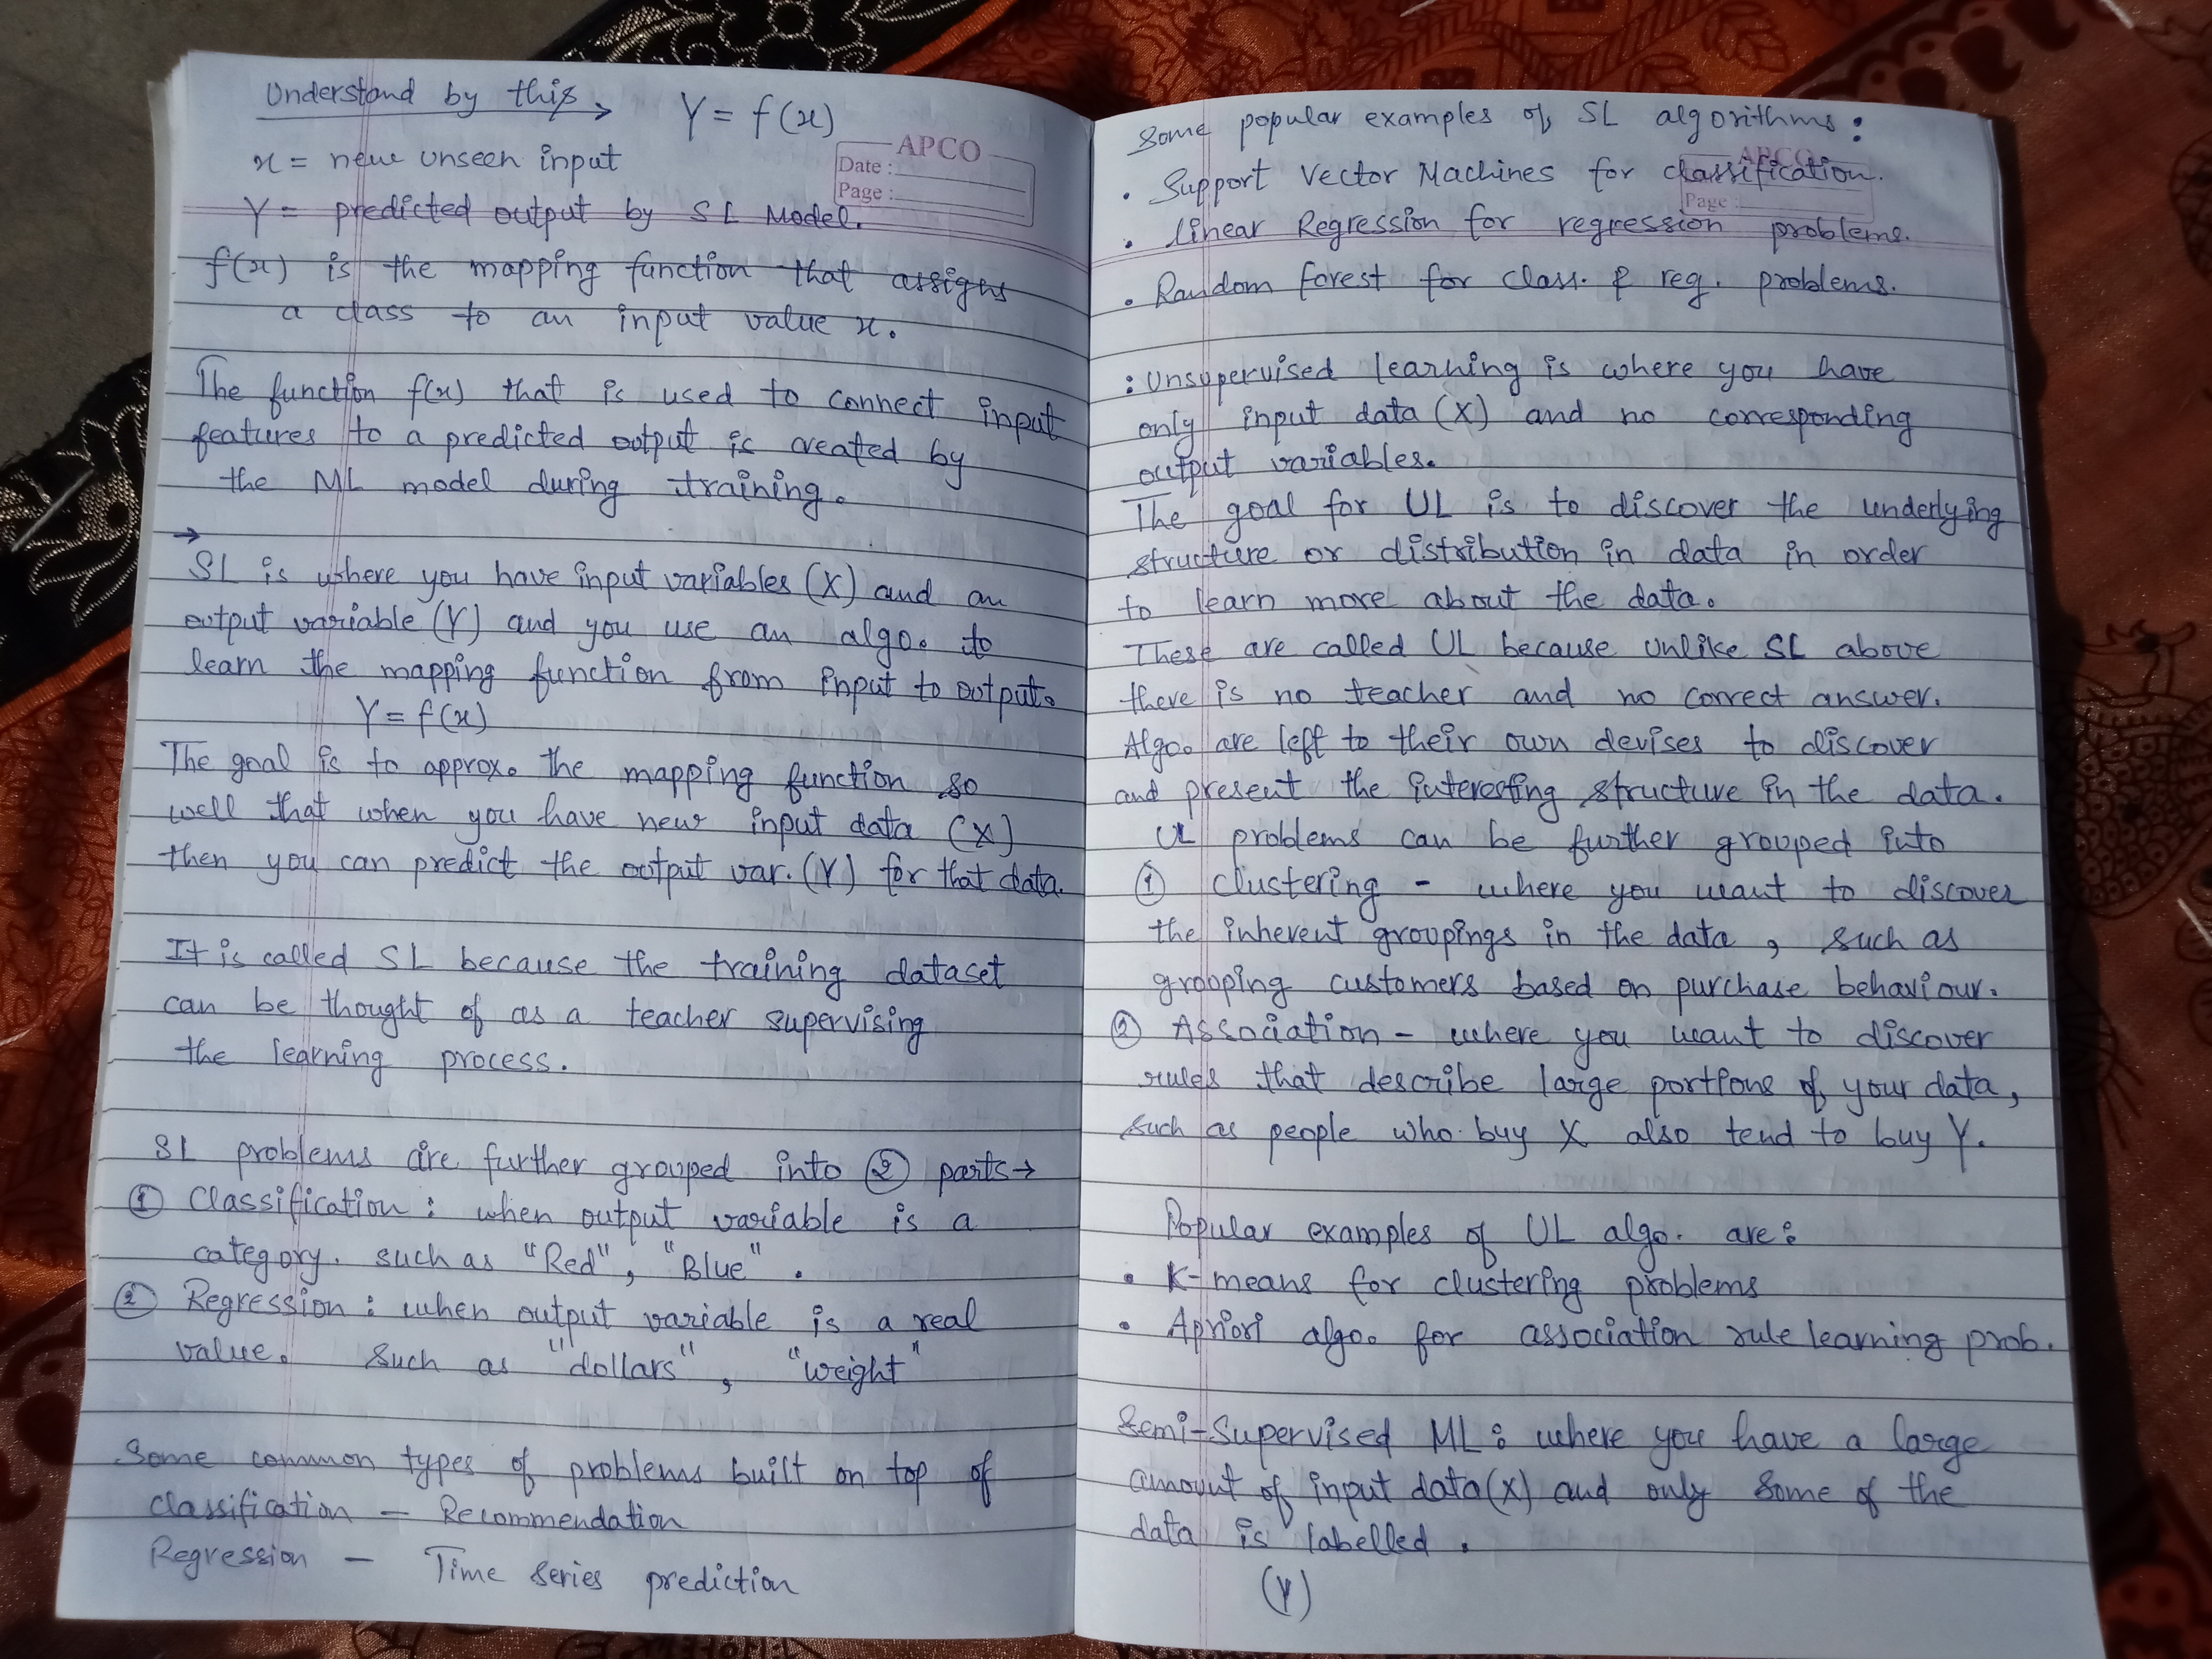 Understand by this → Y = f(x)
APCO
Date :
Page :
x = new unseen input
Y = predicted output by SL Model.
f(x) is the mapping function that assigns
a class to an input value x.
The function f(x) that is used to connect input
features to a predicted output is created by
the ML model during training.
→
SL is where you have input variables (X) and an
output variable (Y) and you use an algo. to
learn the mapping function from input to output.
Y = f(x)
The goal is to approx. the mapping function so
well that when you have new input data (X)
then you can predict the output var. (Y) for that data.
It is called SL because the training dataset
can be thought of as a teacher supervising
the learning process.
SL problems are further grouped into ② parts →
① Classification : when output variable is a
category. such as "Red", "Blue".
② Regression : when output variable is a real
value. such as "dollars", "weight"
Some common types of problems built on top of
classification — Recommendation
Regression — Time series prediction
Some popular examples of SL algorithms :
APCO
Page :
• Support Vector Machines for classification.
• Linear Regression for regression problems.
• Random forest for class. & reg. problems.
: Unsupervised learning is where you have
only input data (X) and no corresponding
output variables.
The goal for UL is to discover the underlying
structure or distribution in data in order
to learn more about the data.
These are called UL because unlike SL above
there is no teacher and no correct answer.
Algo. are left to their own devises to discover
and present the interesting structure in the data.
UL problems can be further grouped into
① Clustering - where you want to discover
the inherent groupings in the data, such as
grooping customers based on purchase behaviour.
② Association - where you want to discover
rules that describe large portions of your data,
such as people who buy X also tend to buy Y.
Popular examples of UL algo. are :
• K-means for clustering problems
• Apriori algo. for association rule learning prob.
Semi-Supervised ML : where you have a large
amount of input data (X) and only some of the
data is labelled.
(Y)